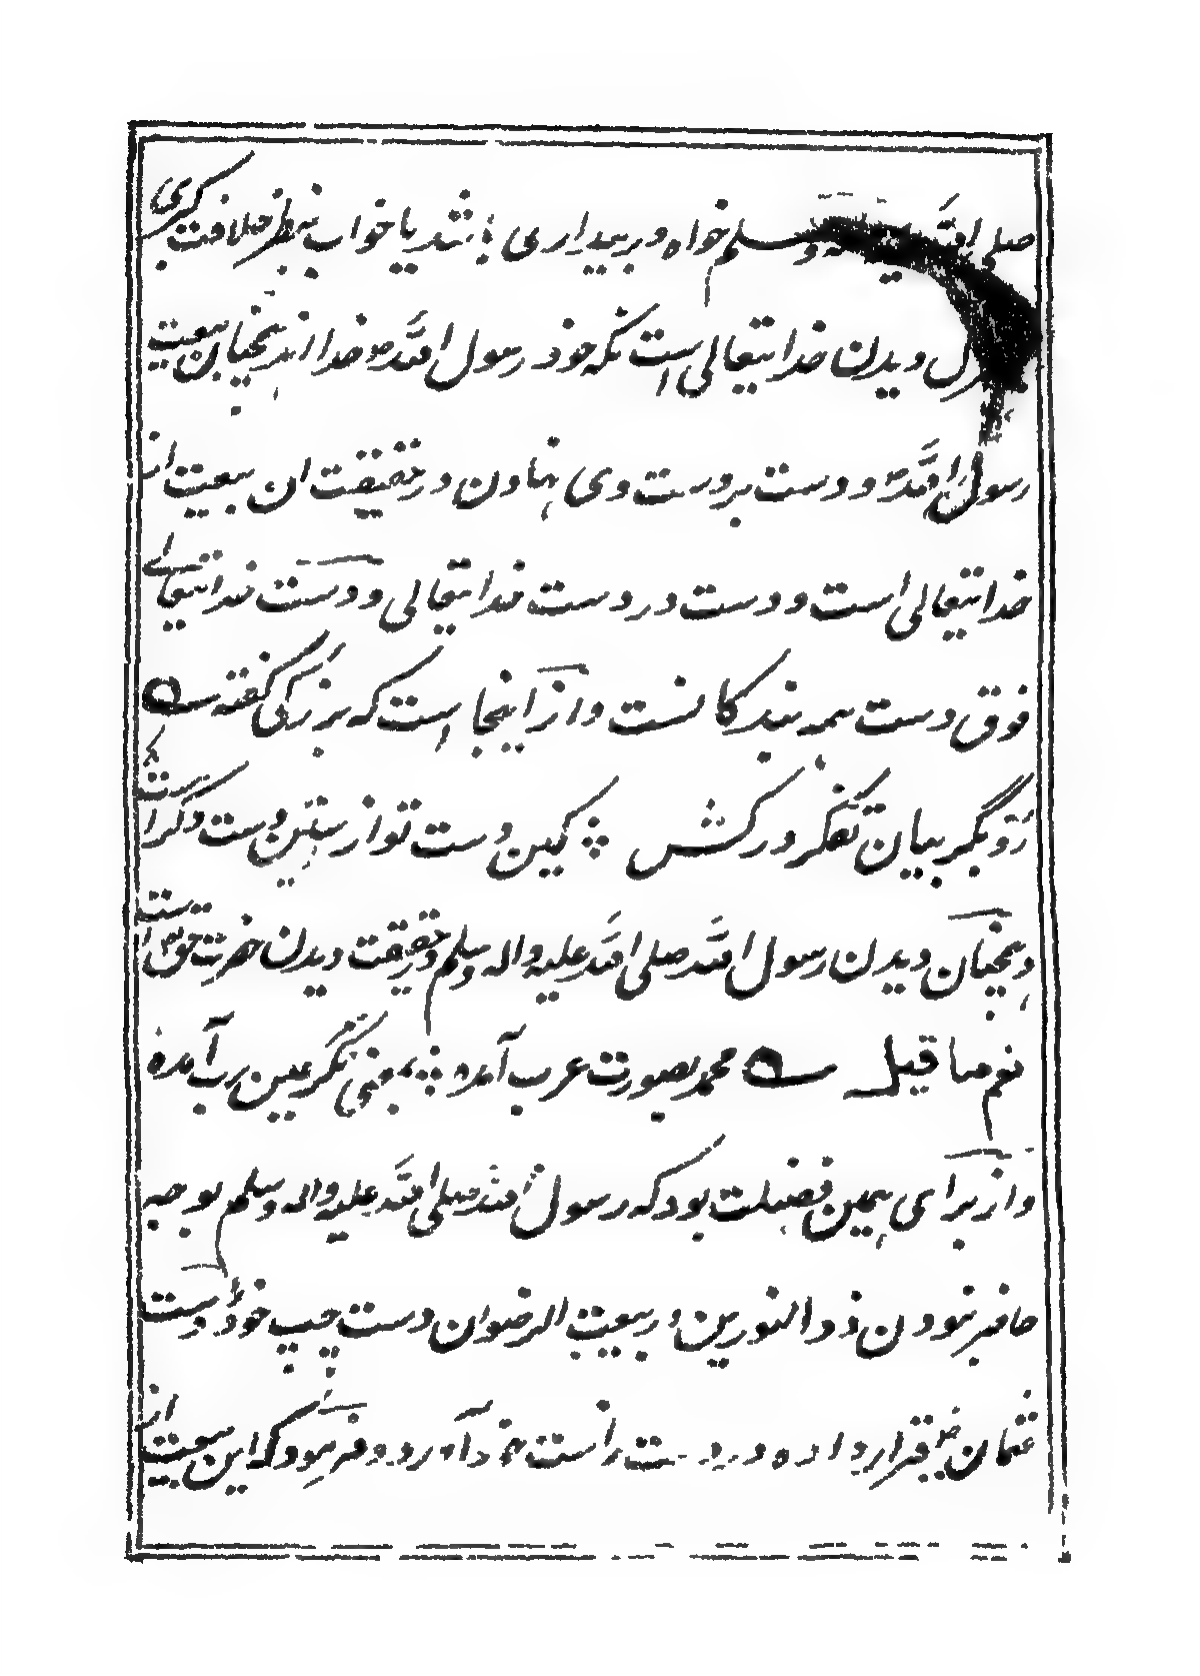 صلی الله علیه و سلم خواه در بیداری باشد یا خواب بنظر خلافت کبری
دیدن خدا تیعالی است نکه خود رسول الله صو خدا اند همچنان بیعت
رسول الله صو و دست بر دست وی نهادن در حقیقت ان بیعت از
خدا تیعالی است و دست در دست خدا تیعالی و دست خدا تیعالی
فوق دست همه بندکانست و از اینجا است که بزرکی کفته
رو بگریبان تفکر در کش کین دست تو از ستین دست دکر است
و همچنان دیدن رسول الله صلی الله علیه واله وسلم در حقیقت دیدن حضرت حق است
نعم ما قیل محمد بصورت عرب آمده بمعنی نگر عین رب آمده
و از برای همین فضیلت بود که رسول الله صلی الله علیه واله وسلم بوجه
حاضر نبودن ذو النورین در بیعت الرضوان دست چپ خود را دست
عثمان رض قرار داده در دست راست خود آورد و فرمود که این بیعت از